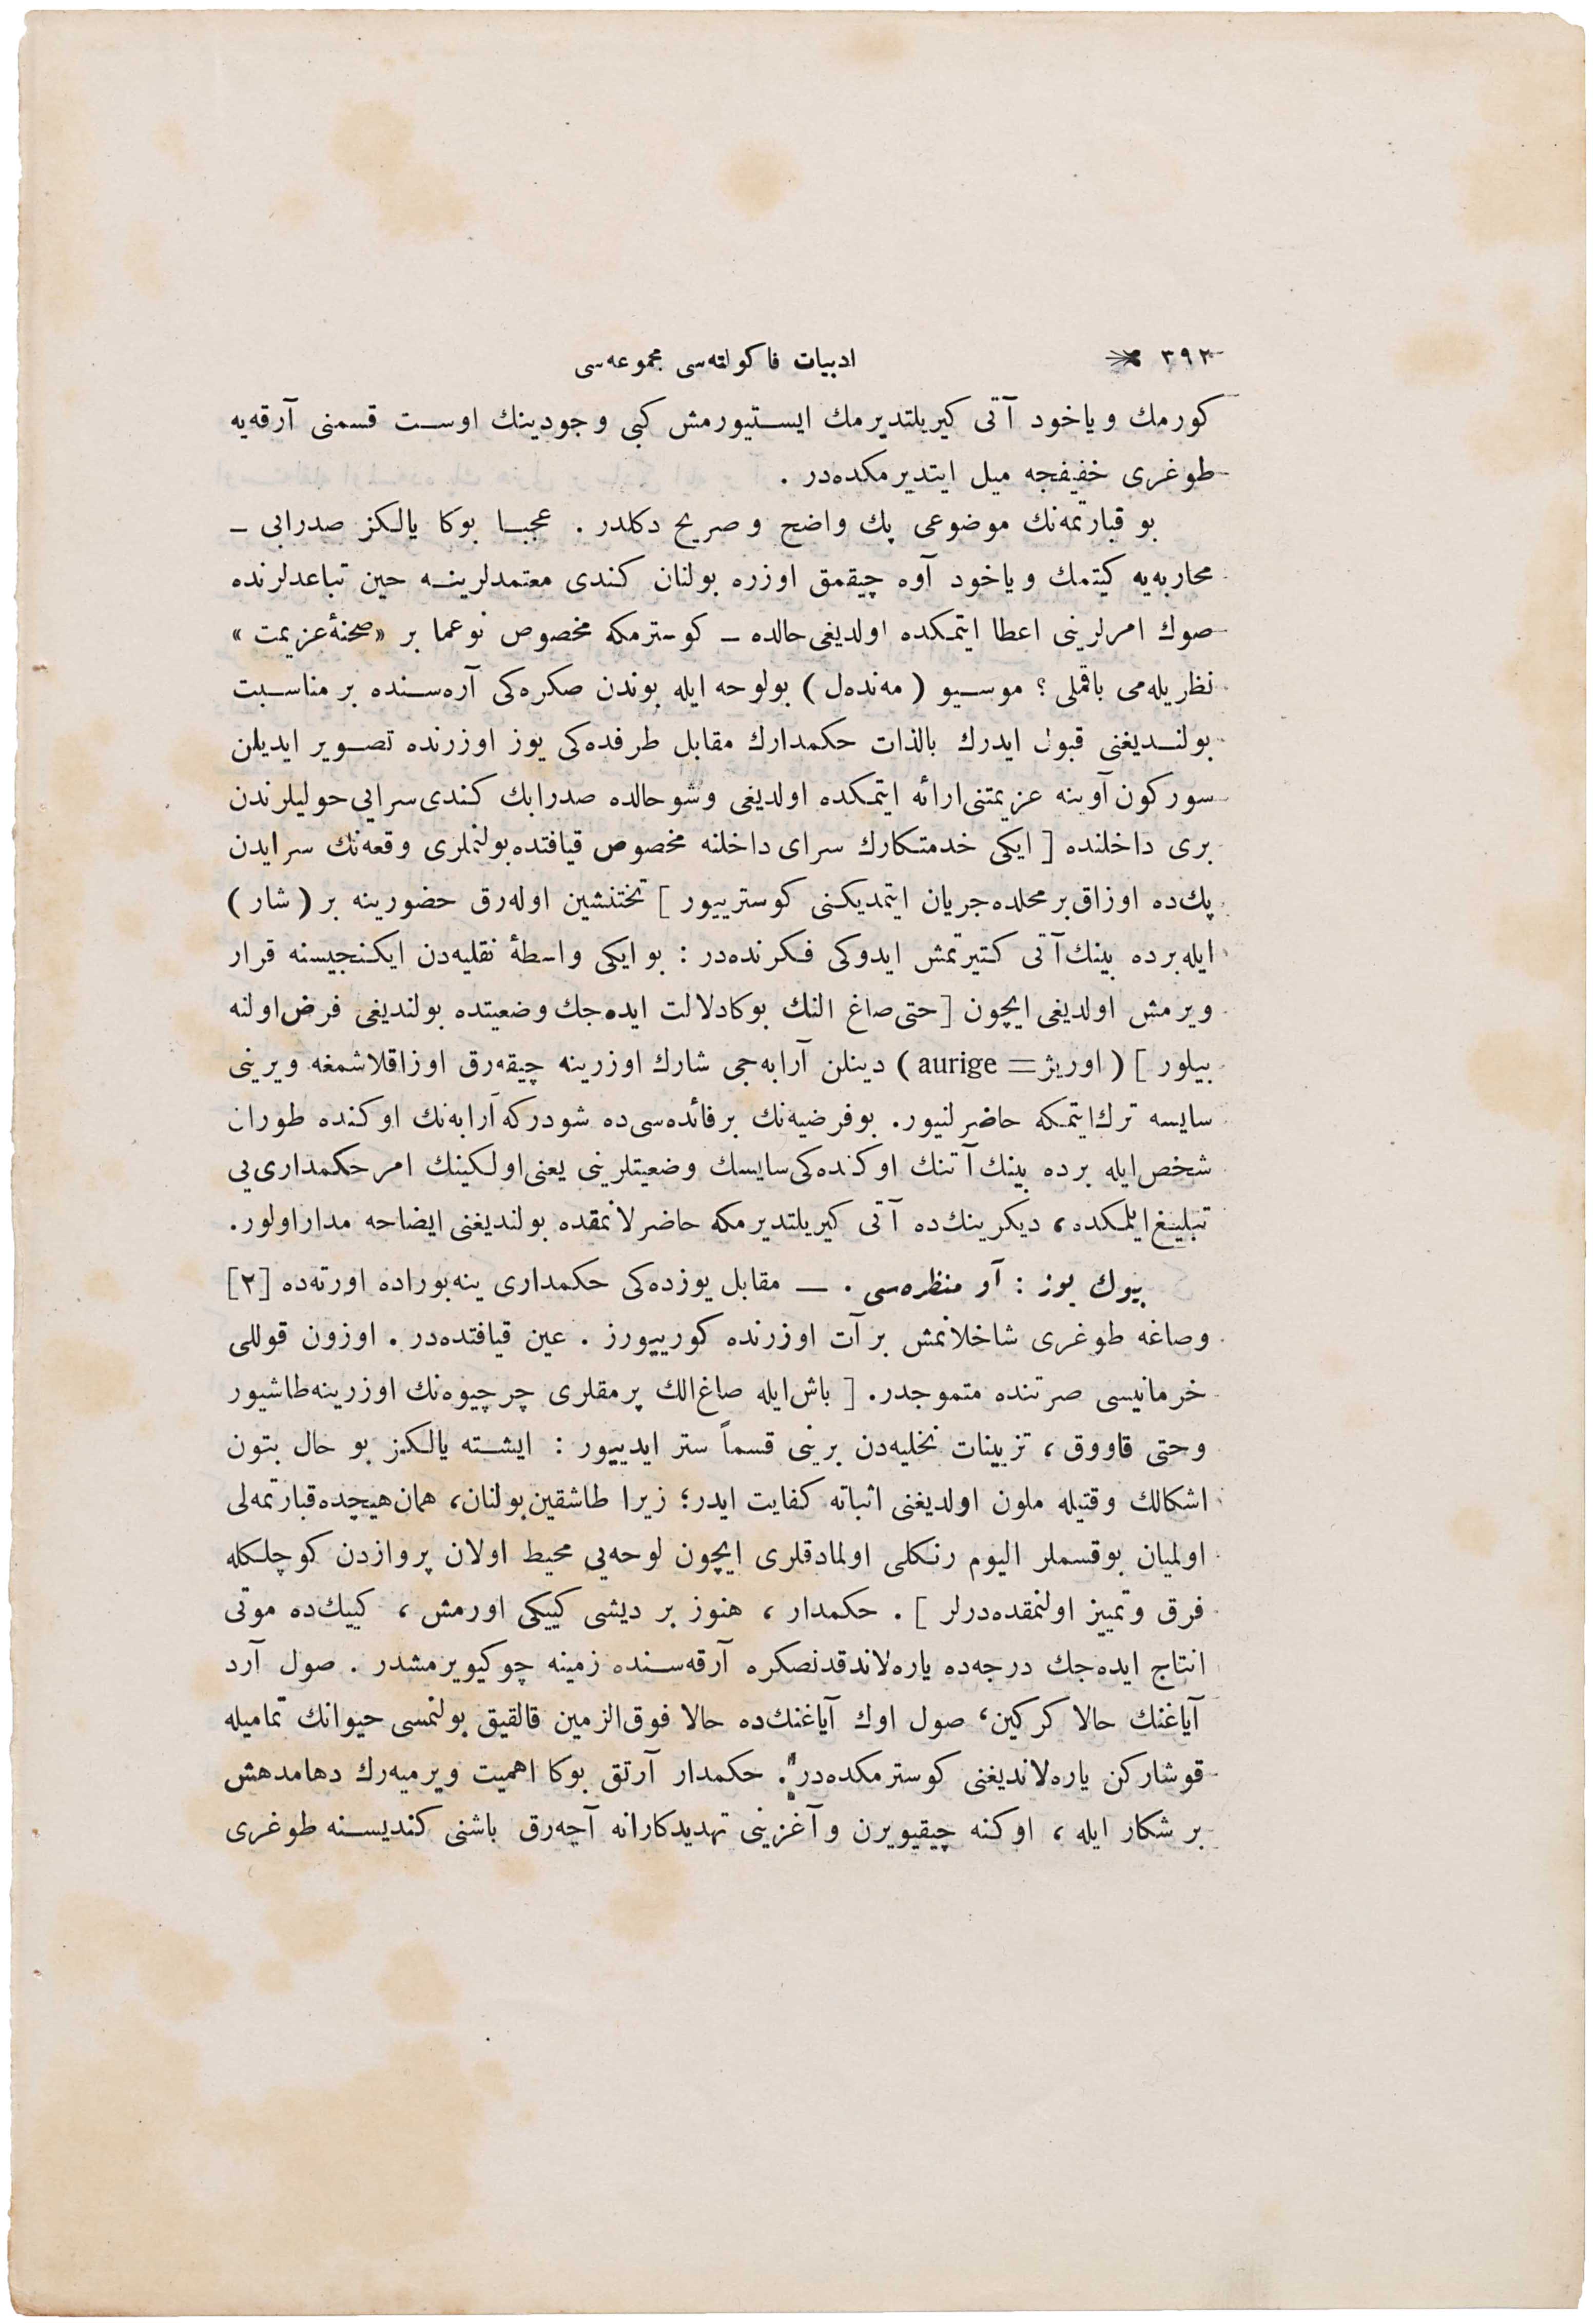 ٣٩٢ ادبيات فاكولته‌سى مجموعه‌سى
كورمك وياخود آتى كيريلتديرمك ايستيورمش كبى وجودينك اوست قسمنى آرقه‌يه
طوغرى خفيفجه ميل ايتديرمكده‌در .
بو قبارتمه‌نك موضوعى پك واضح و صريح دكلدر . عجبا بوكا يالكز صدرابى –
محاربه‌يه كيتمك وياخود آوه چيقمق اوزره بولنان كندى معتمدلرينه حين تباعدلرنده
صوك امرلرينى اعطا ايتمكده اولديغى حالده – كوسترمكه مخصوص نوعما بر «صحنهٔ عزيمت»
نظريله‌مى باقملى ؟ موسيو ( مه‌نده‌ل ) بولوحه ايله بوندن صكره‌كى آره‌سنده بر مناسبت
بولنديغنى قبول ايدرك بالذات حكمدارك مقابل طرفده‌كى يوز اوزرنده تصوير ايديلن
سوركون آوينه عزيمتنى ارائه ايتمكده اولديغى وشو حالده صدرابك كندى سرايى حوليلرندن
برى داخلنده [ ايكى خدمتكارك سراى داخلنه مخصوص قيافتده بولنملرى وقعه‌نك سرايدن
پك‌ده اوزاق بر محلده جريان ايتمديكنى كوسترييور ] تختنشين اوله‌رق حضورينه بر ( شار )
ايله برده بينك آتى كتيرتمش ايدوكى فكرنده‌در : بو ايكى واسطهٔ نقليه‌دن ايكنجيسنه قرار
ويرمش اولديغى ايچون [ حتى صاغ النك بوكا دلالت ايده‌جك وضعيتده بولنديغى فرض اولنه
بيلور ] ( اوريژ = aurige ) دينلن آرابه‌جى شارك اوزرينه چيقه‌رق اوزاقلاشمغه ويرينى
سايسه ترك ايتمكه حاضرلنيور. بوفرضيه‌نك بر فائده‌سى‌ده شودركه آرابه‌نك اوكنده طوران
شخص ايله برده بينك آتنك اوكنده‌كى سايسك وضعيتلرينى يعنى اولكينك امر حكمدارى‌يى
تبليغ ايلمكده، ديكرينك‌ده آتى كيريلتديرمكه حاضرلانمقده بولنديغنى ايضاحه مدار اولور.
بيوك يوز : آو منظره‌سى . — مقابل يوزده‌كى حكمدارى ينه بوراده اورته‌ده [٢]
وصاغه طوغرى شاخلانمش بر آت اوزرنده كورييورز . عين قيافتده‌در . اوزون قوللى
خرمانيسى صرتنده متموجدر. [ باش ايله صاغ الك پرمقلرى چرچيوه‌نك اوزرينه طاشيور
وحتى قاووق ، تزيينات نخليه‌دن برينى قسماً ستر ايدييور : ايشته يالكز بو حال بتون
اشكالك وقتيله ملون اولديغنى اثباته كفايت ايدر؛ زيرا طاشقين بولنان، همان هيچده قبارتمه‌لى
اولميان بوقسملر اليوم رنكلى اولمادقلرى ايچون لوحه‌يى محيط اولان پروازدن كوچلكله
فرق وتمييز اولنمقده‌درلر ] . حكمدار ، هنوز بر ديشى كييكى اورمش ، كييك‌ده موتى
انتاج ايده‌جك درجه‌ده ياره‌لاندقدنصكره آرقه‌سنده زمينه چوكيويرمشدر . صول آرد
آياغنك حالا كركين، صول اوك آياغنك‌ده حالا فوق‌الزمين قالقيق بولنمسى حيوانك تماميله
قوشاركن ياره‌لانديغنى كوسترمكده‌در . حكمدار آرتق بوكا اهميت ويرميه‌رك دها مدهش
بر شكار ايله ، اوكنه چيقيويرن و آغزينى تهديدكارانه آچه‌رق باشنى كنديسنه طوغرى